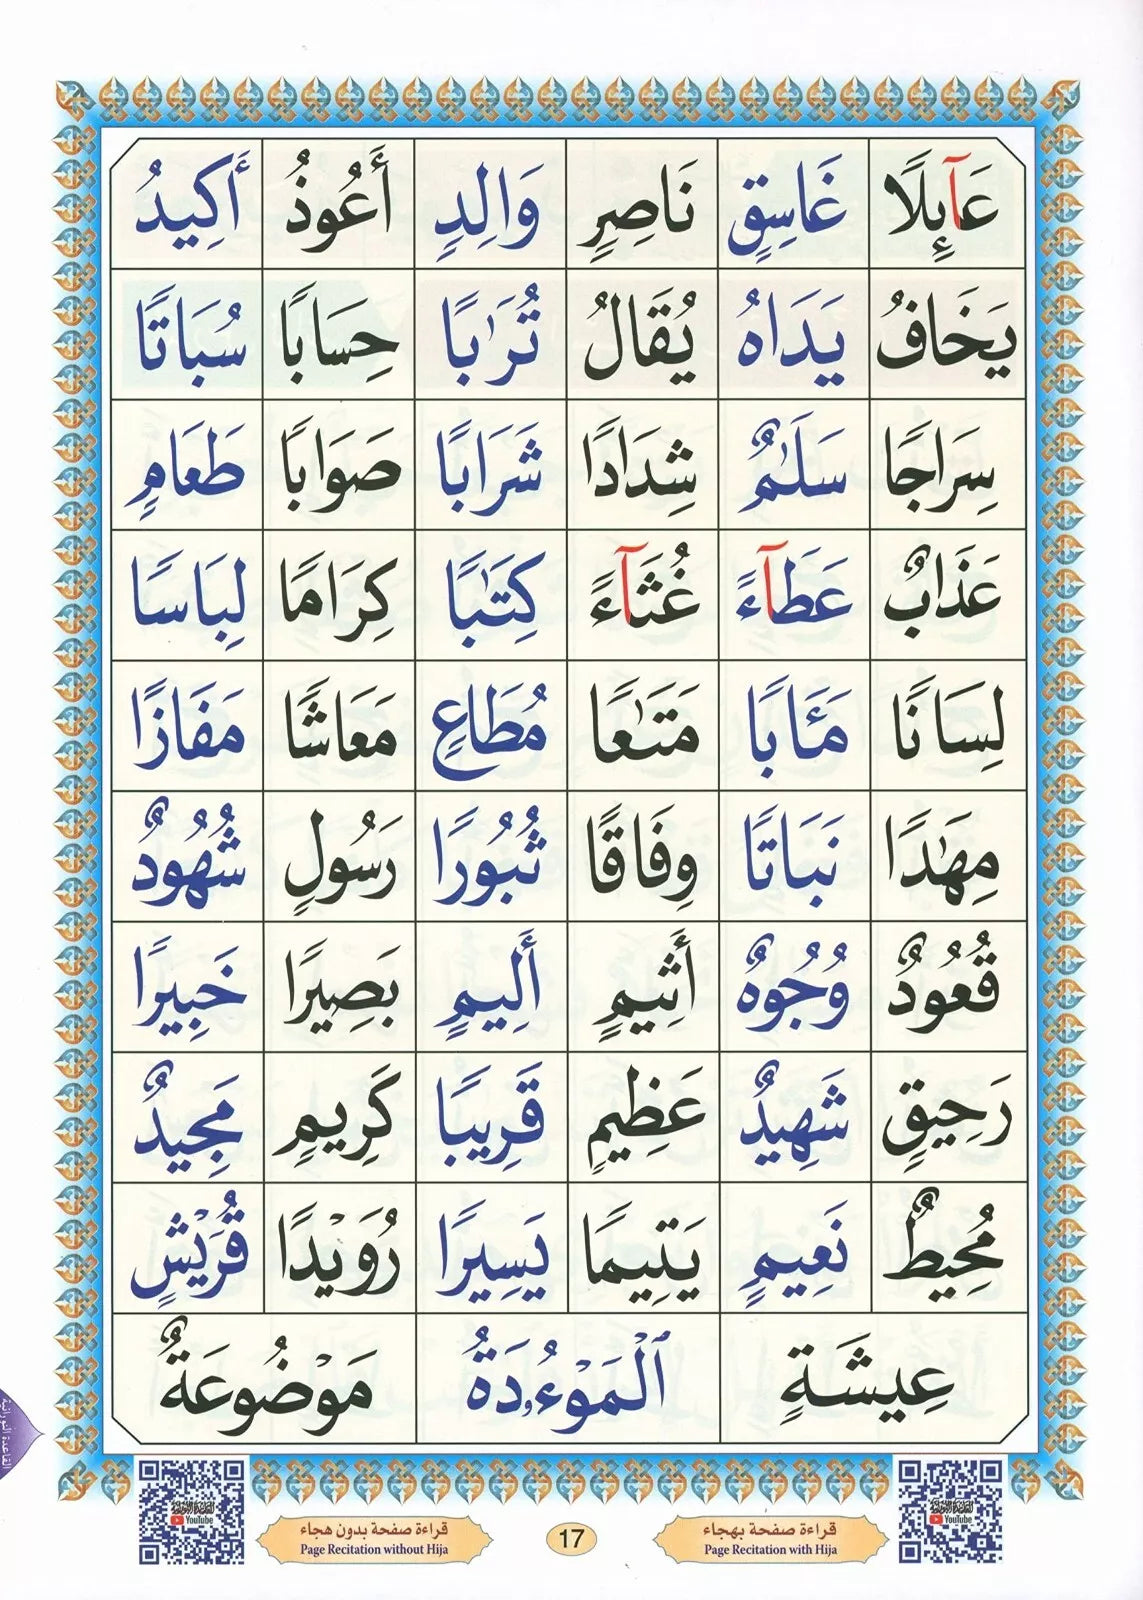 عَآئِلًا غَاسِقٍ نَاصِرٍ وَالِدٍ أَعُوذُ أَكِيدُ
يَخَافُ يَدَاهُ يُقَالُ تُرَٰبًا حِسَابًا سُبَاتًا
سِرَاجًا سَلَٰمٌ شِدَادًا شَرَابًا صَوَابًا طَعَامٍ
عَذَابٌ عَطَآءً غُثَآءً كِتَٰبًا كِرَامًا لِبَاسًا
لِسَانًا مَـَٔابًا مَتَٰعًا مُطَاعٍ مَعَاشًا مَفَازًا
مِهَٰدًا نَبَاتًا وِفَاقًا ثُبُورًا رَسُولٍ شُهُودٌ
قُعُودٌ وُجُوهٌ أَثِيمٍ أَلِيمٍ بَصِيرًا خَبِيرًا
رَحِيقٍ شَهِيدٌ عَظِيمٍ قَرِيبًا كَرِيمٍ مَجِيدٌ
مُحِيطٌ نَعِيمٍ يَتِيمًا يَسِيرًا رُوَيْدًا قُرَيْشٍ
عِيشَةٍ ٱلْمَوْءُۥدَةُ مَوْضُوعَةٌ
القاعدة النورانية
YouTube
YouTube
قراءة صفحة بهجاء
Page Recitation with Hija
17
قراءة صفحة بدون هجاء
Page Recitation without Hija